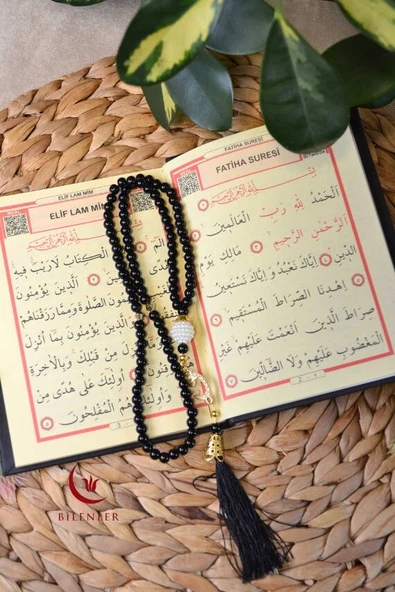 FATİHA SURESİ
FATİHA SURESİ
بِسْمِ اللّٰهِ الرَّحْمٰنِ الرَّحِيمِ
اَلْحَمْدُ لِلّٰهِ رَبِّ الْعَالَمِينَ
اَلرَّحْمٰنِ الرَّحِيمِ مَالِكِ يَوْمِ
الدِّينِ اِيَّاكَ نَعْبُدُ وَاِيَّاكَ نَسْتَعِينُ
اِهْدِنَا الصِّرَاطَ الْمُسْتَقِيمَ
صِرَاطَ الَّذِينَ اَنْعَمْتَ عَلَيْهِمْ غَيْرِ
الْمَغْضُوبِ عَلَيْهِمْ وَلَا الضَّالِّينَ
ELİF LAM MİM
ELİF LAM MİM
بِسْمِ اللّٰهِ الرَّحْمٰنِ الرَّحِيمِ
الْكِتَابُ لَا رَيْبَ فِيهِ
هُدًى اَلَّذِينَ يُؤْمِنُونَ
الصَّلٰوةَ وَمِمَّا رَزَقْنَاهُمْ
وَالَّذِينَ يُؤْمِنُونَ بِمَا اُنْزِلَ
مِنْ قَبْلِكَ وَبِالْاٰخِرَةِ
اُولٰئِكَ عَلٰى هُدًى مِنْ
وَاُولٰئِكَ هُمُ الْمُفْلِحُونَ
BİLENLER